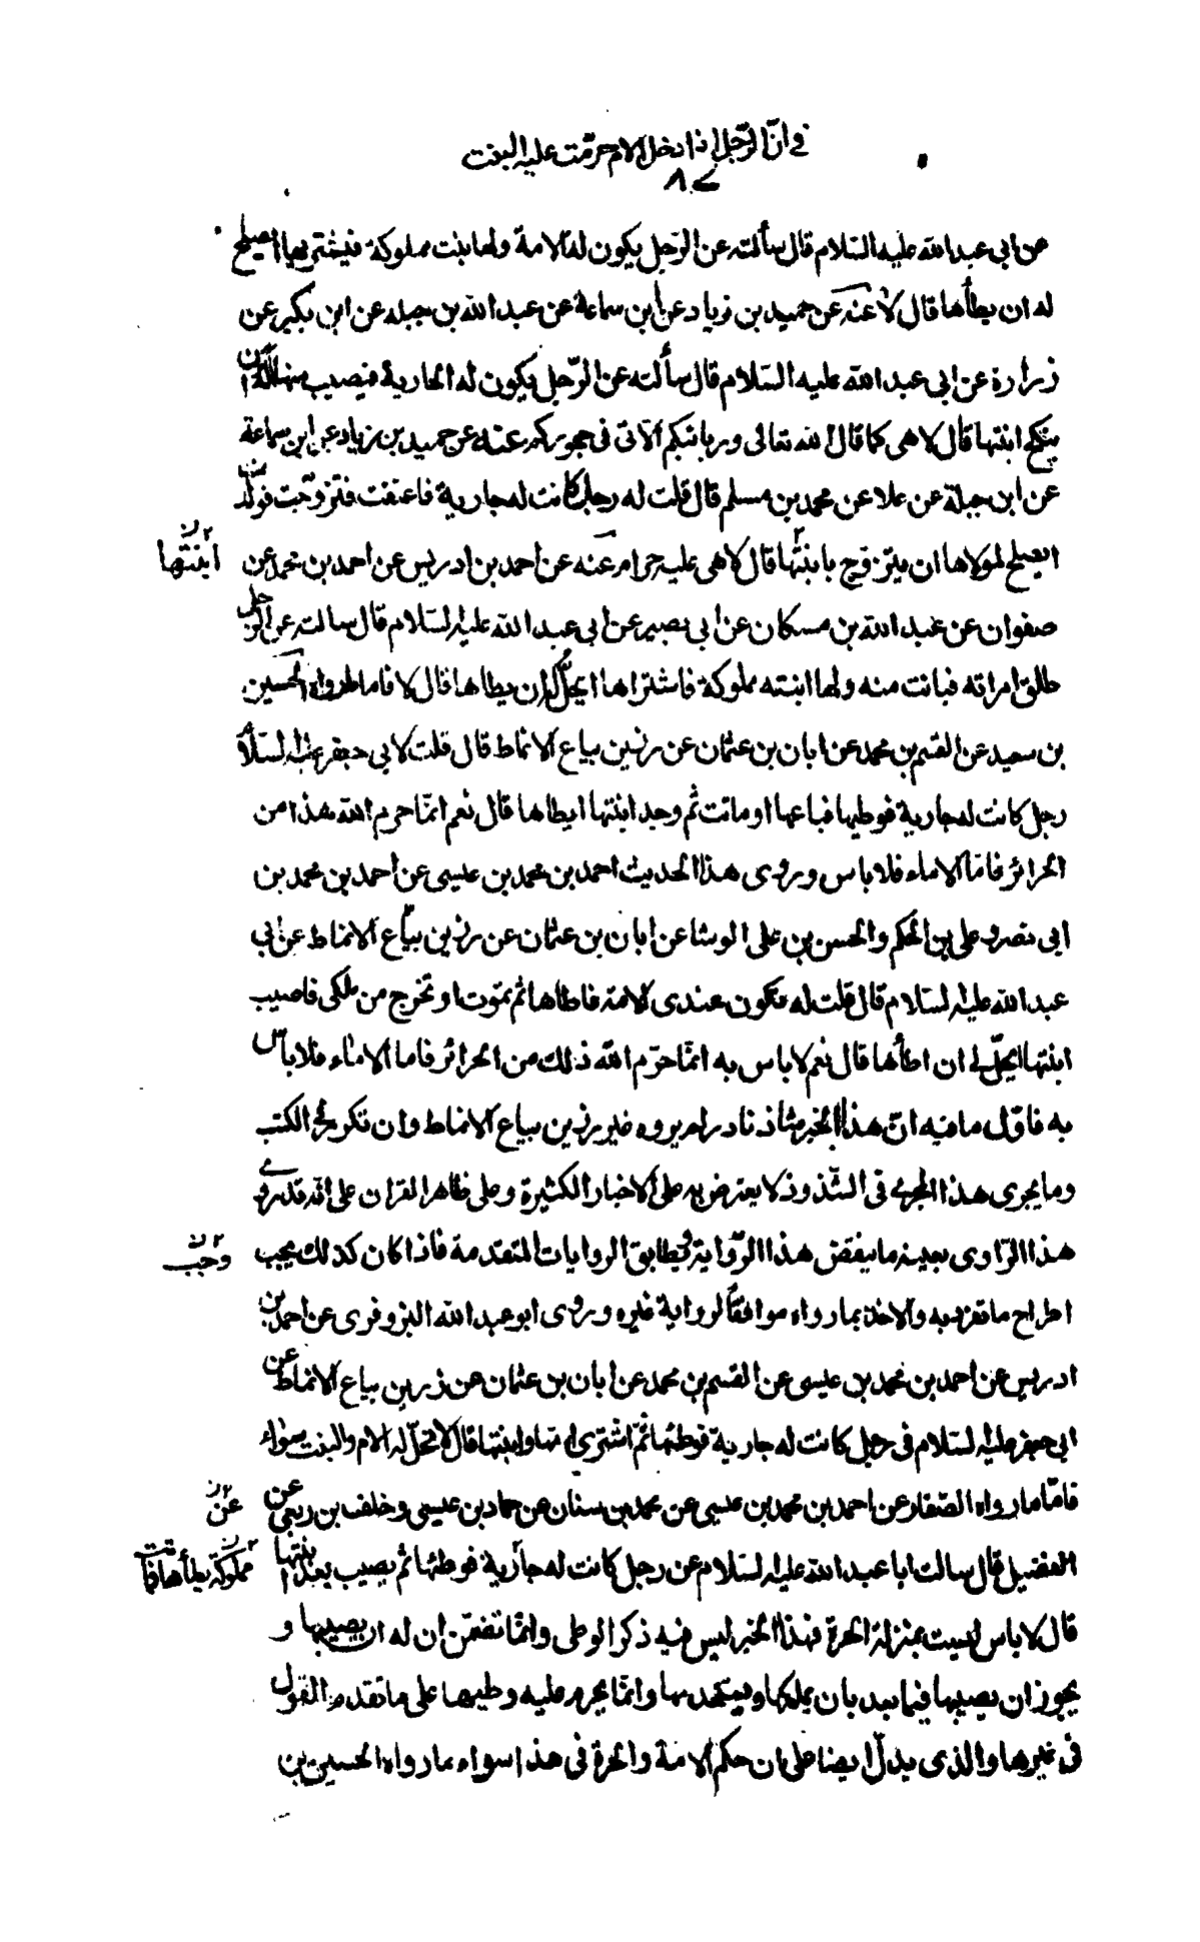 في انّ الرّجل اذا دخل بالام حرّمت عليه البنت
٨٢
عن ابي عبدالله عليه السّلام قال سألته عن الرّجل يكون له الامة ولها بنت مملوكة فيشتريها ايصلح
له ان يطأها قال لا عنه عن حميد بن زياد عن ابن سماعة عن عبدالله بن جبله عن ابن بكير عن
زرارة عن ابي عبدالله عليه السّلام قال سألته عن الرّجل يكون له الجارية فيصيب منها اله ان
ينكح ابنتها قال لا هى كما قال الله تعالى وربائبكم اللاّتى فى حجوركم عنه عن حميد بن زياد عن ابن سماعة
عن ابن جبلة عن علا عن محمد بن مسلم قال قلت له رجل كانت له جارية فاعتقت فتزوّجت فولدت
ايصلح لمولاها ان يتزوج بابنتها قال لا هى عليه حرام عنه عن احمد بن ادريس عن احمد بن محمد عن
ابنتها
صفوان عن عبد الله بن مسكان عن ابى بصير عن ابى عبد الله عليه السّلام قال سالته عن الرجل
طلق امراته فبانت منه ولها ابنته مملوكة فاشتراها ايحلّ له ان يطاها قال لا فاما ما رواه الحسين
بن سعيد عن القسم بن محمد عن ابان بن عثمان عن رزين بياع الانماط قال قلت لابي جعفر عليه السّلام
رجل كانت له جارية فوطيها فباعها او ماتت ثم وجد ابنتها ايطاها قال نعم انّما حرم الله هذا من
الحرائر فامّا الاماء فلا باس وروى هذا الحديث احمد بن محمد بن عيسى عن احمد بن محمد بن
ابى نصر وعلى بن الحكم والحسن بن على الوشا عن ابان بن عثمان عن رزين بيّاع الانماط عن ابي
عبدالله عليه السّلام قال قلت له تكون عندى الامة فاطاها ثم تموت او تخرج من ملكى فاصيب
ابنتها ايحلّ لي ان اطأها قال نعم لا باس به انّما حرّم الله ذلك من الحرائر فاما الاماء فلا باس
به فاوّل ما فيه انّ هذا الخبر شاذ نادر لم يروه غير رزين بياع الانماط وان تكرر في الكتب
وما يجرى هذا المجرى فى الشّذوذ لا يعترض به على الاخبار الكثيرة وعلى ظاهر القران على انّه قد روى
هذا الرّاوى بعينه ما ينقض هذا الرّواية ويطابق الروايات المتقدمة فاذا كان كذلك يجب
وجب
اطراح ما تفرد به والاخذ بما رواه موافقاً لرواية غيره وروى ابو عبد الله البزوفرى عن احمد بن
ادريس عن احمد بن محمد بن عيسى عن القسم بن محمد عن ابان بن عثمان عن رزين بياع الانماط عن
ابى جعفر عليه السّلام فى رجل كانت له جارية فوطئها ثمّ اشترى امّها وابنتها قال لا تحلّ له الام والبنت سواء
فامّا ما رواه الصّفار عن احمد بن محمد بن عيسى عن محمد بن سنان عن حماد بن عيسى وخلف بن ربعى عن
عن
الفضيل قال سالت ابا عبد الله عليه السّلام عن رجل كانت له جارية فوطئها ثم يصيب بعد ابنتها
مملوكة يطأها فماتت
قال لا باس ليست بمنزلة الحرة فهذا الخبر ليس فيه ذكر الوطى وانّما تضمّن ان له ان يصيبها و
يجوز ان يصيبها فيما بعد بان يملكها ويستخدمها وانّما يحرم عليه وطيها على ما تقدم القول
فى غيرها والذى يدلّ ايضا على ان حكم الامة والحرة فى هذا سواء ما رواه الحسين بن